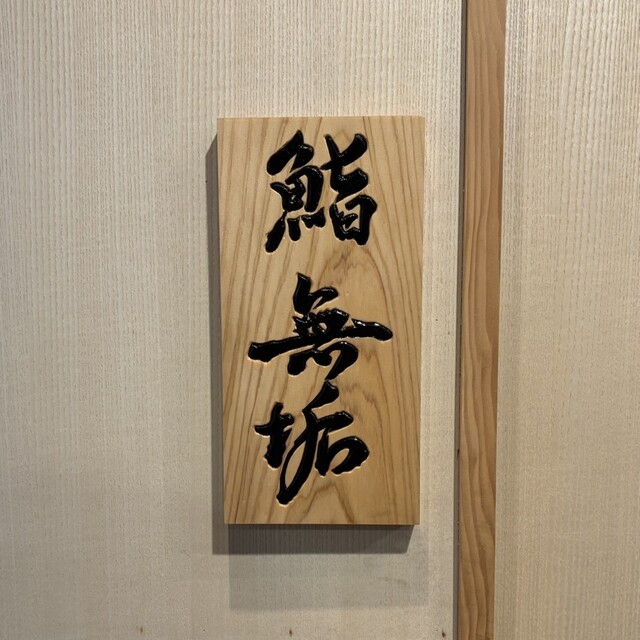 鮨無垢